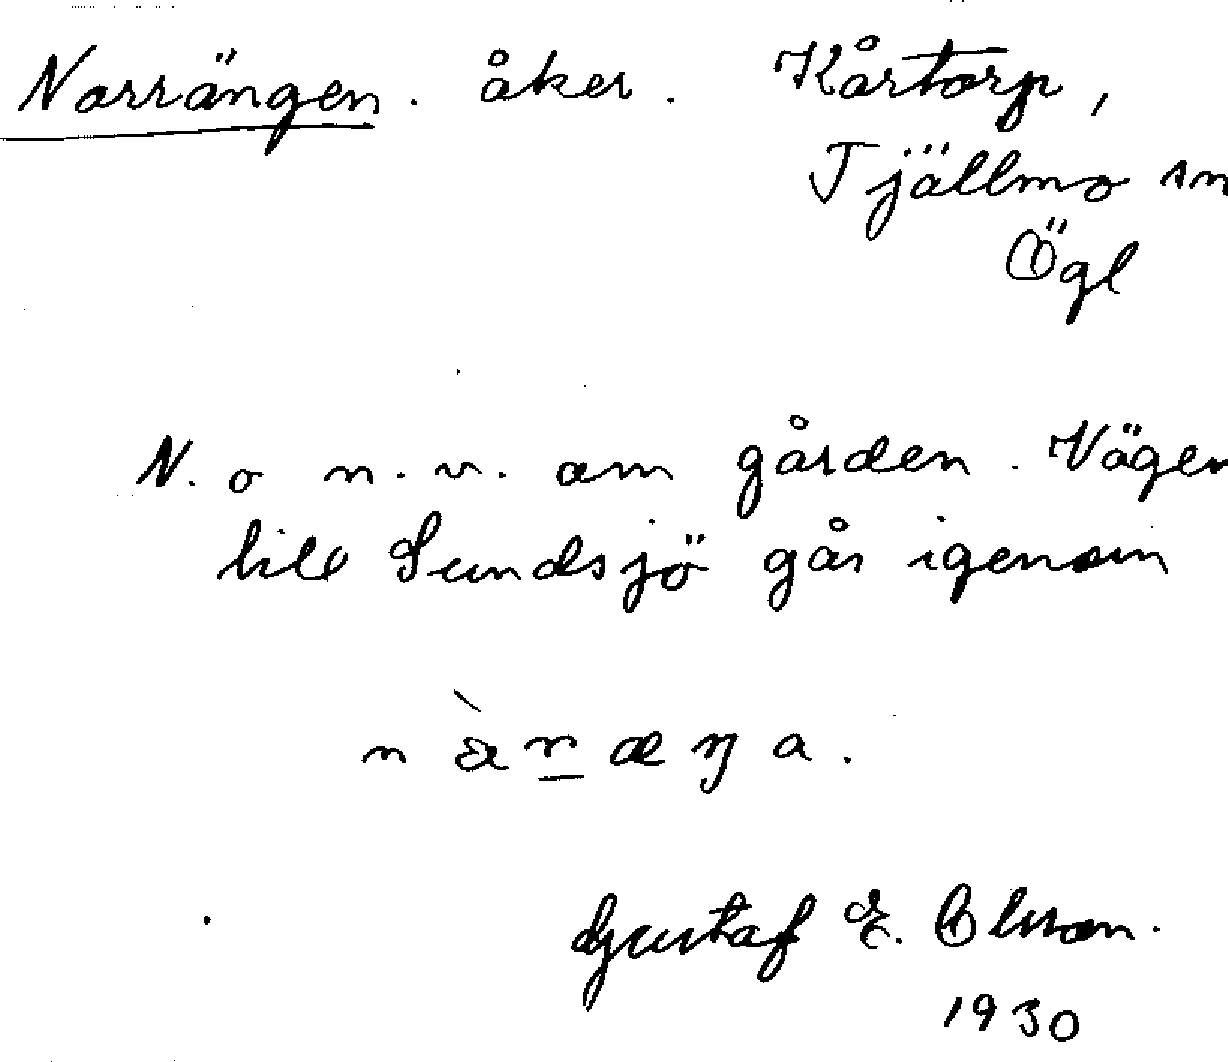 Norrängen. åker. Kårtorp,
Tjällmo sn
Ögl
N. o n.v. om gården. Vägen
till Sundsjö går igenom
Gustaf E. Olsson.
1930